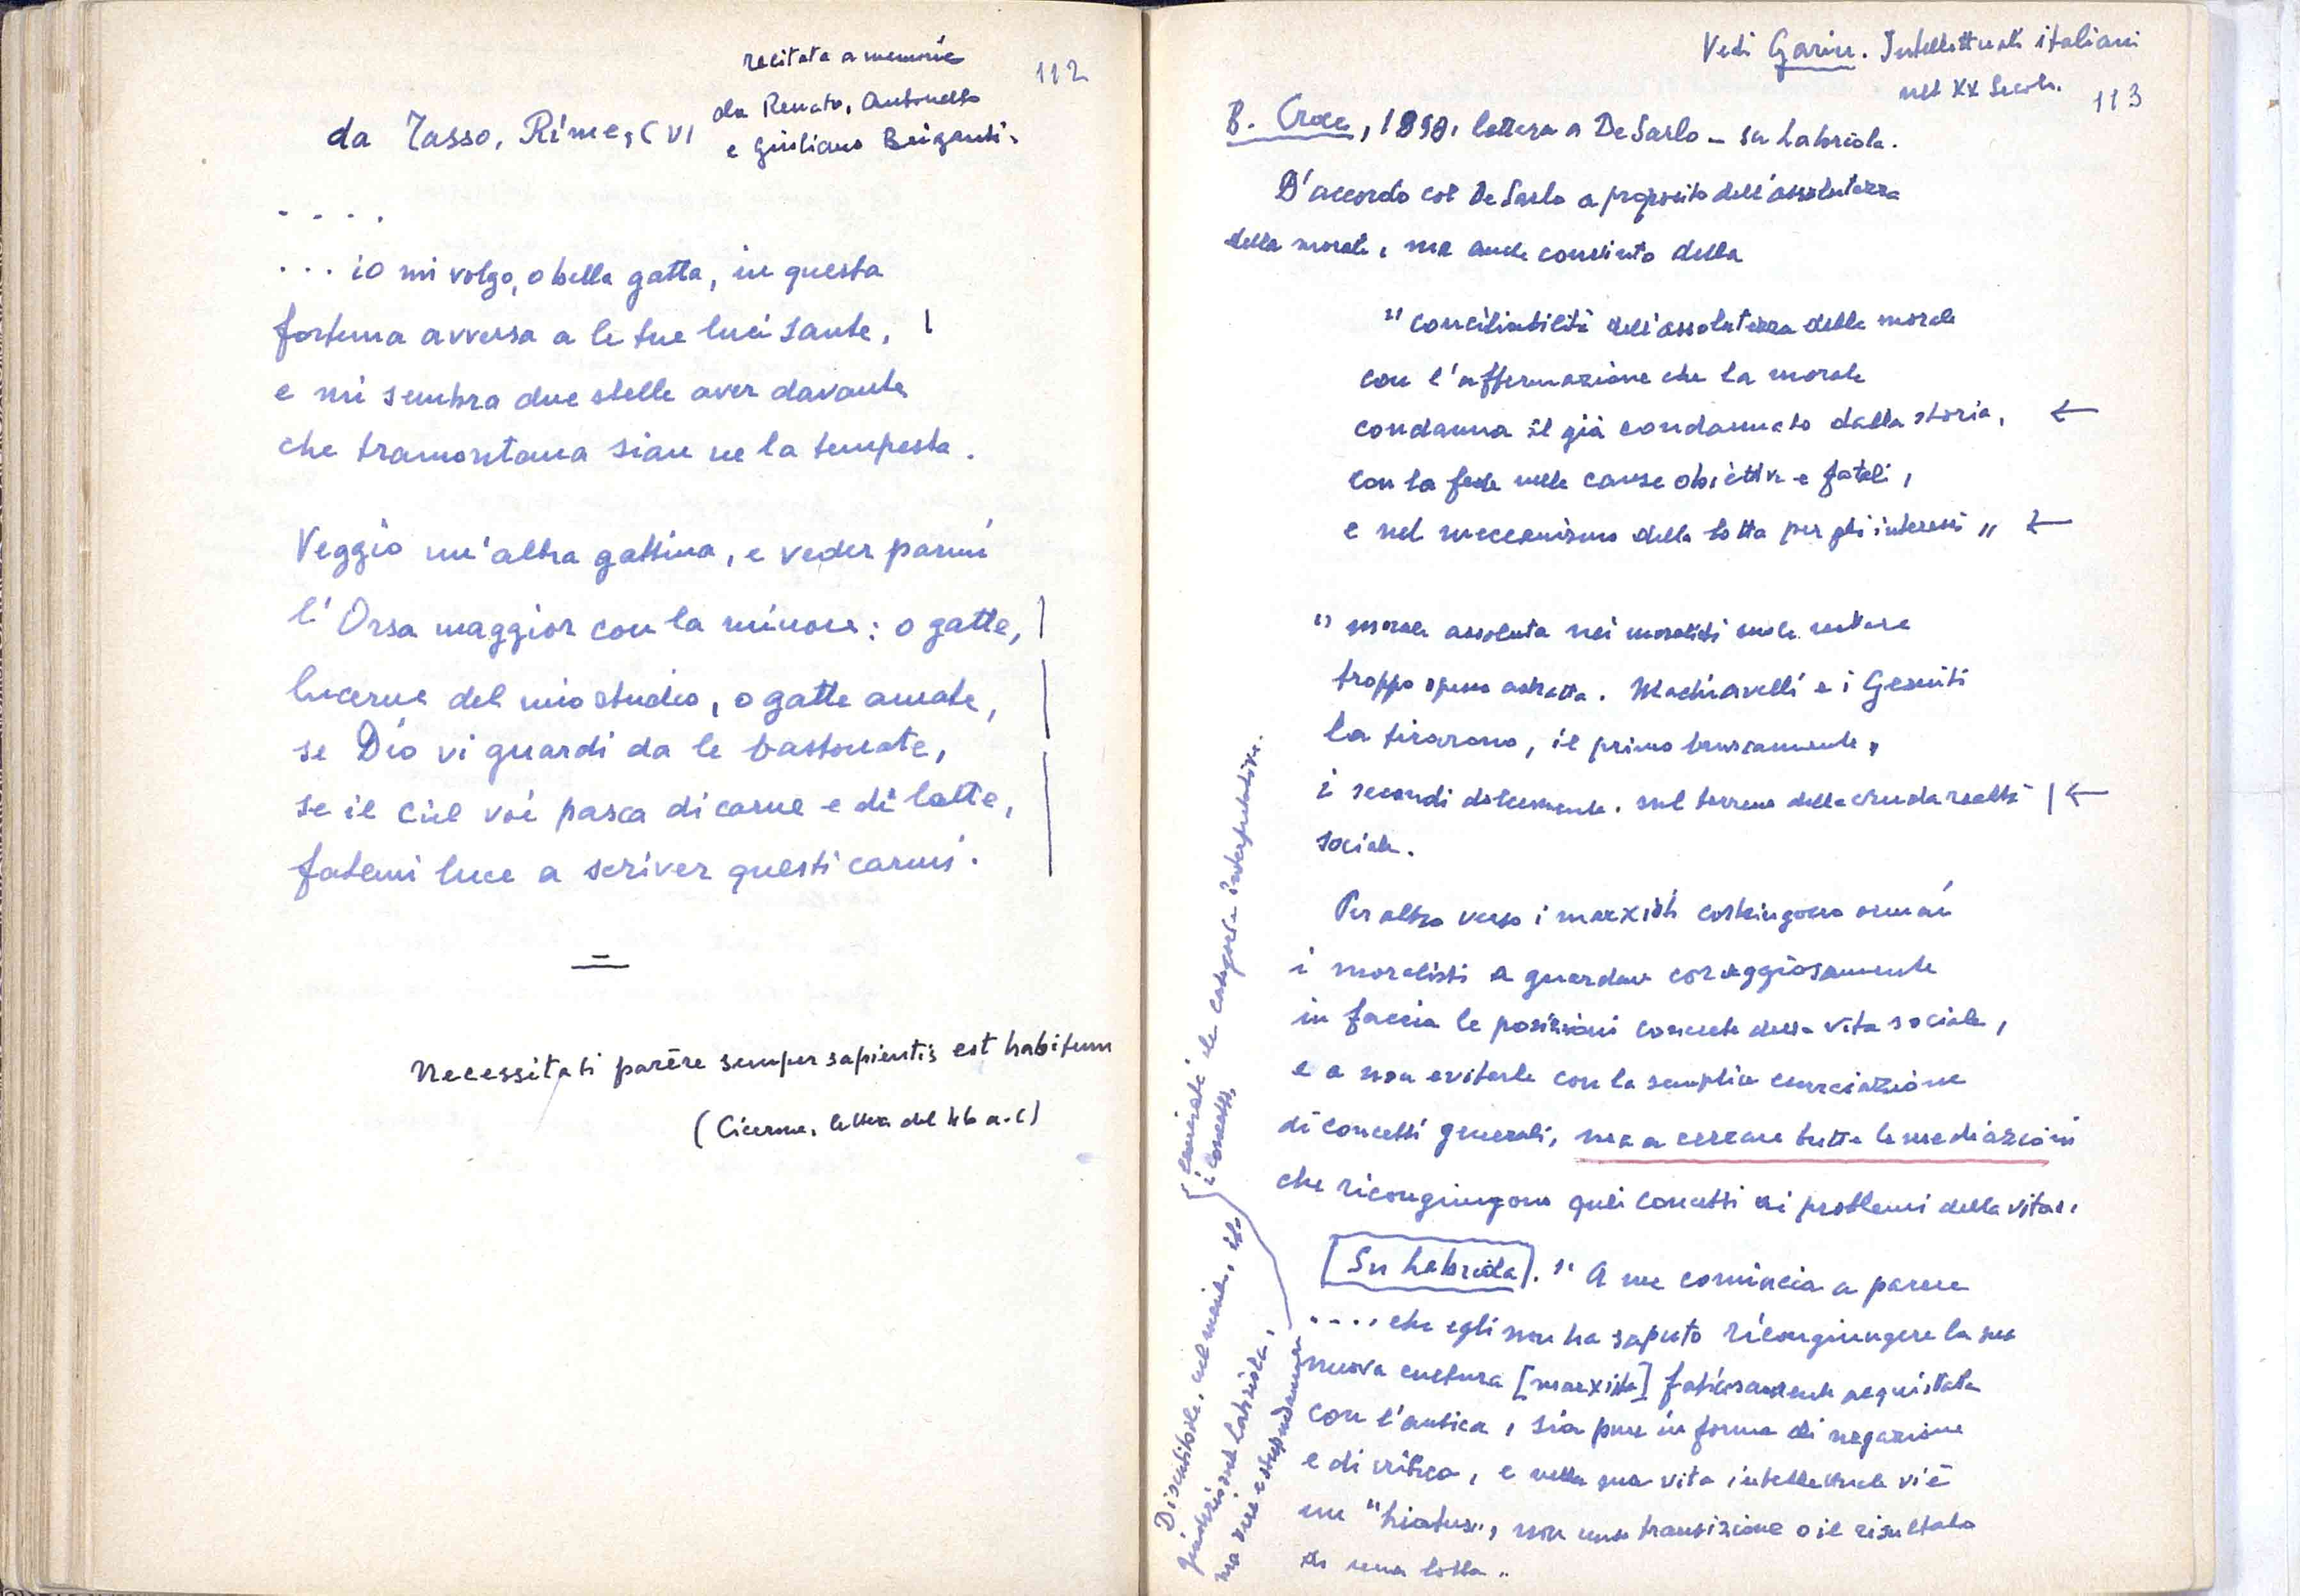 recitata a memoria
112
da Renato, Antonello
da Tasso, Rime, CVI
e Giuliano Briganti.
. . . .
. . . io mi volgo, o bella gatta, in questa
fortuna avversa a le tue luci sante,
e mi sembra due stelle aver davante
che tramontana sian ne la tempesta.
Veggio un'altra gattina, e veder parmi
l'Orsa maggior con la minore: o gatte,
lucerne del mio studio, o gatte amate,
se Dio vi guardi da le bastonate,
se il ciel voi pasca di carne e di latte,
fatemi luce a scriver questi carmi.
=
Necessitati parēre semper sapientis est habitum
(Cicerone, lettera del 46 a.C)
Vedi Garin. Intellettuali italiani
nel XX Secolo.
113
B. Croce, 1898, lettera a De Sarlo – su Labriola.
D'accordo col De Sarlo a proposito dell'assolutezza
della morale, ma anche convinto della
"conciliabilità dell'assolutezza della morale
con l'affermazione che la morale
condanna il già condannato dalla storia, ←
con la fede nelle cause obiettive e fatali,
e nel meccanismo della lotta per gli interessi" ←
"morale assoluta nei moralisti suole restare
troppo spesso astratta. Machiavelli e i Gesuiti
la tirarono, il primo bruscamente,
i secondi dolcemente, sul terreno della cruda realtà | ←
sociale.
Per altro verso i marxisti costringono ormai
i moralisti a guardare coraggiosamente
in faccia le posizioni concrete della vita sociale,
e a non evitarle con la semplice enunciazione
di concetti generali, ma a cercare tutte le mediazioni
che ricongiungono quei concetti ai problemi della vita".
[Su Labriola]. "A me comincia a parere
.... che egli non ha saputo ricongiungere la sua
nuova cultura [marxista] faticosamente acquistata
con l'antica, sia pure in forma di negazione
e di critica, e nella sua vita intellettuale vi è
un "hiatus", non una transizione o il risultato
di una lotta".
Discutibile, ovviamente, il
giudizio sul Labriola,
ma vere e stupende
i concetti,
le categorie interpretative.